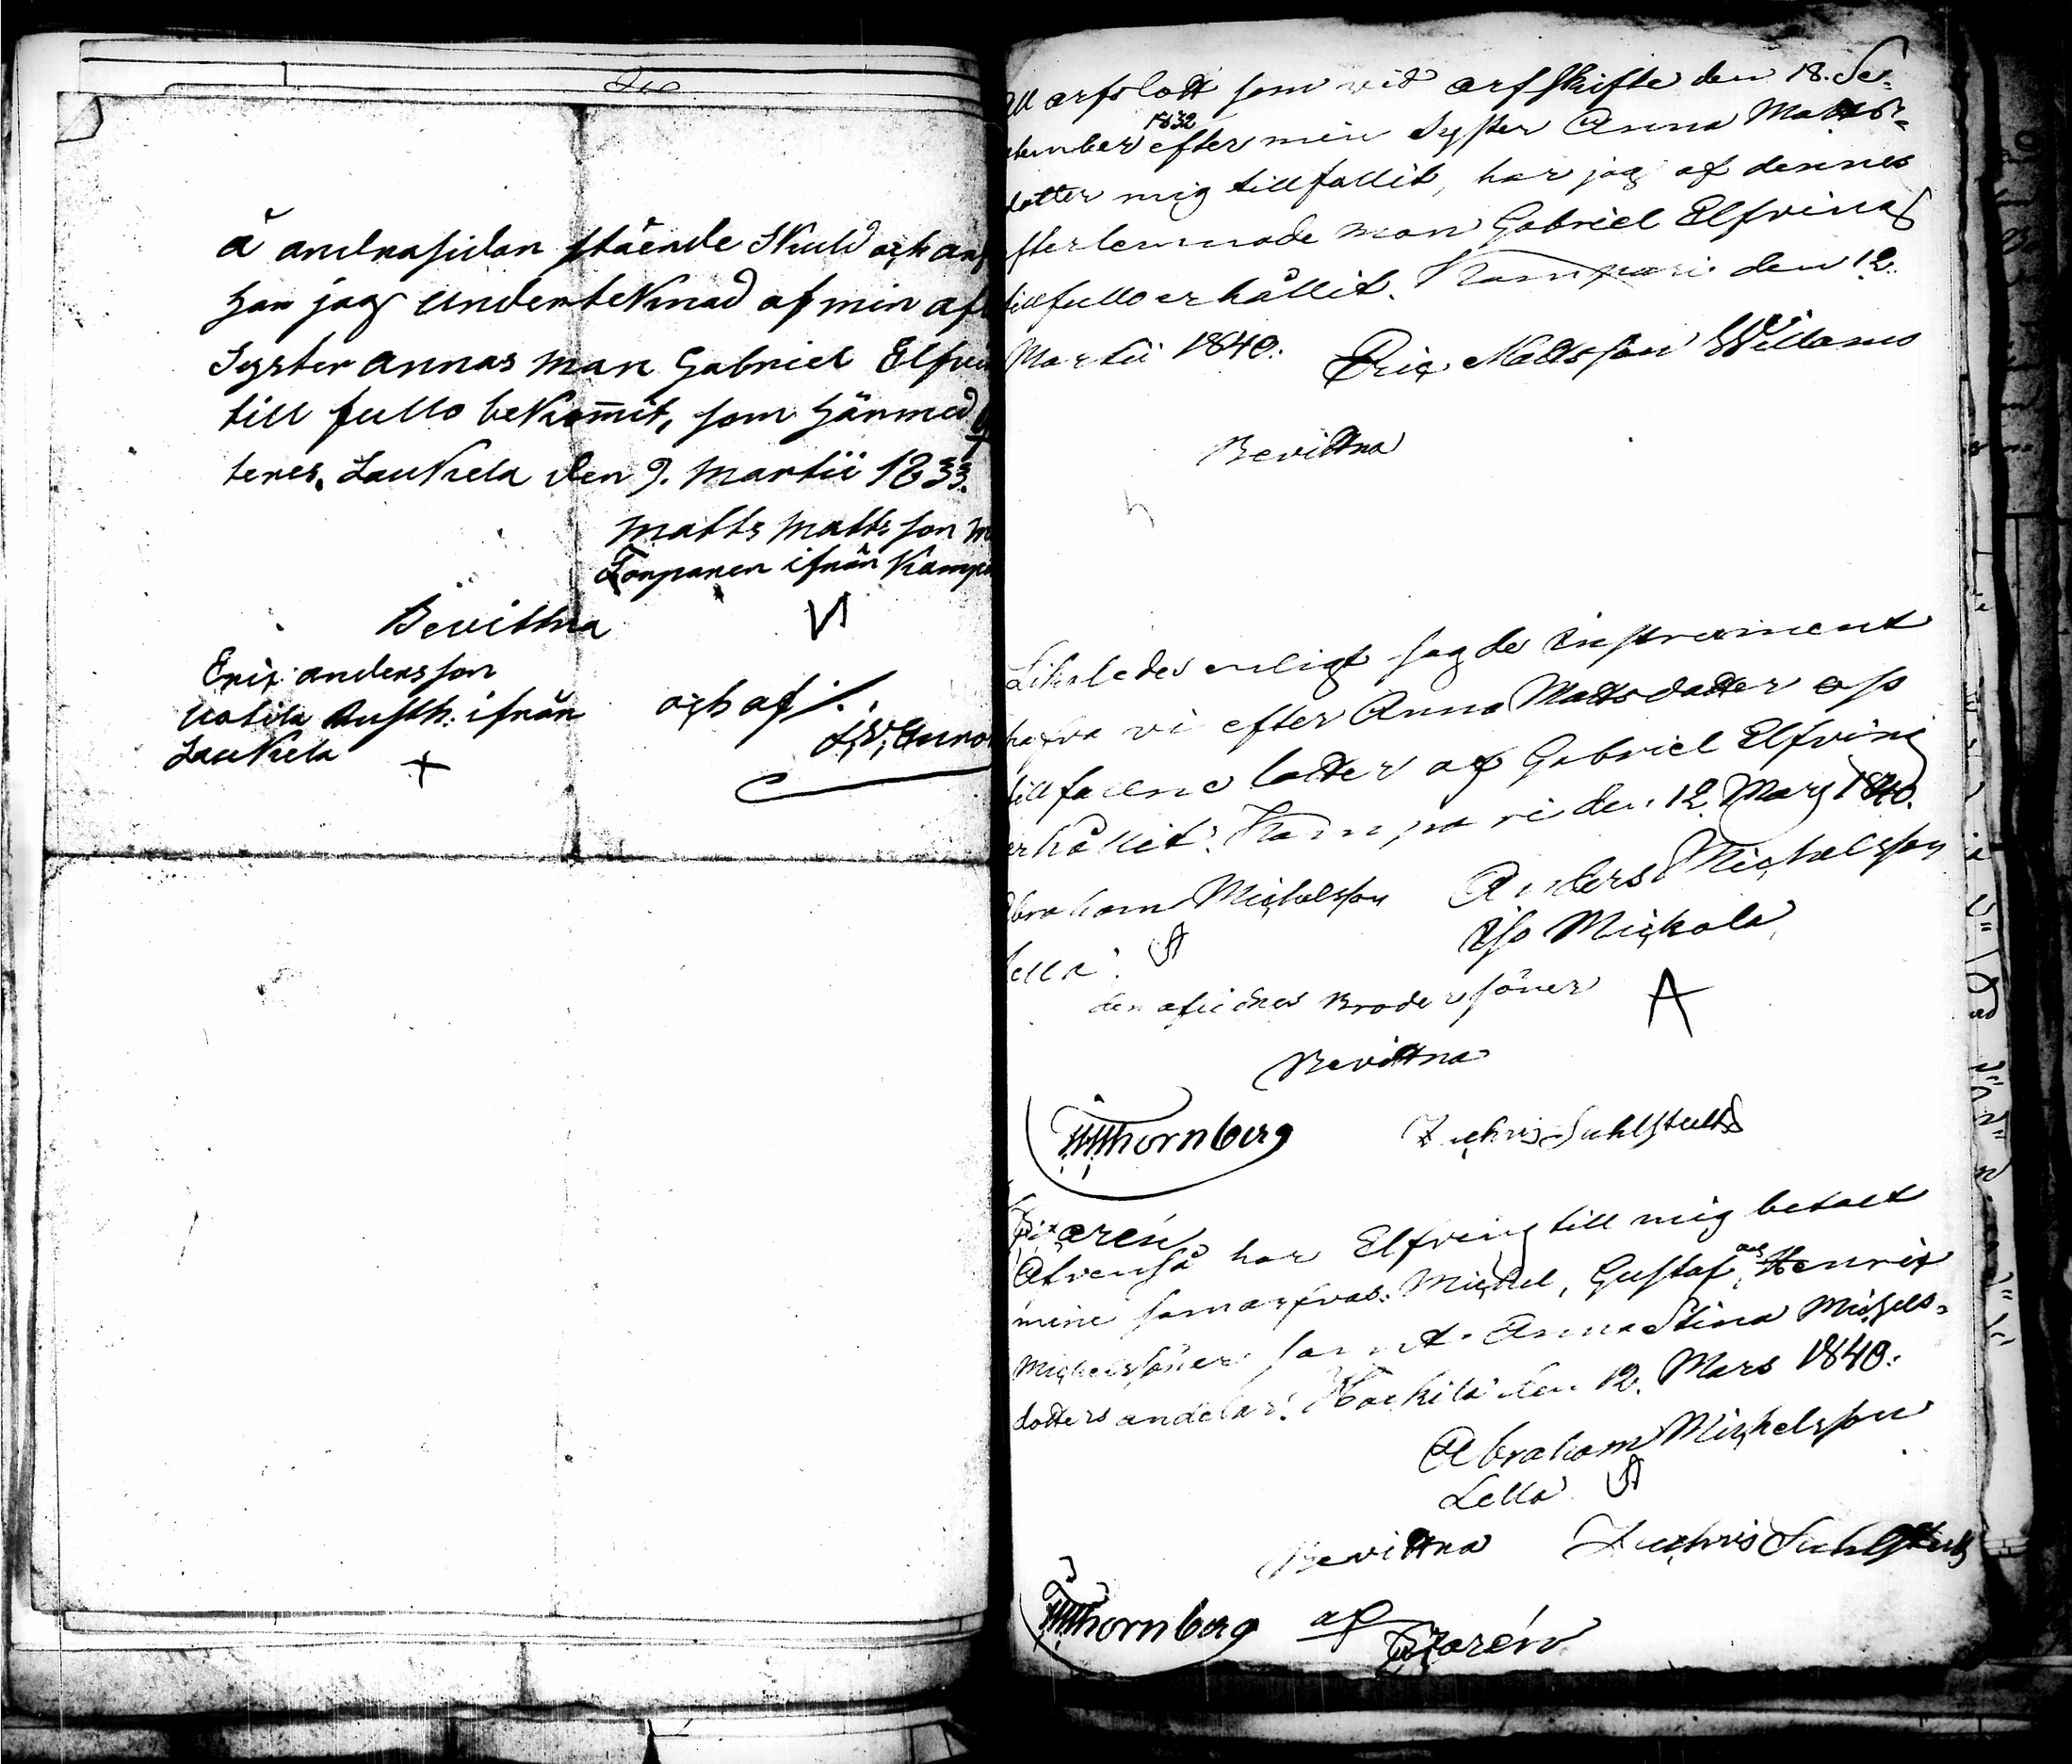 å andra sidan stående Skuld och
har jag underteknad af min
Syster Annas man Gabriel
till fullo bekommit, som härmed
teres. Laukela den 9. Martii 1833.
Matts Mattsson
Torparen ifrån
Bevittna
Eric andersson
Uotila Rusth. ifrån
Laukela
och af
arfslott som vid arfskifte den 18. Se-
1832
tember efter min Syster Anna Matts-
dotter mig tillfallit, har jag af dennes
efterlemnade man Gabriel Elfving
tillfullo erhållit. Kampari den 12.
Martii 1840.
Eric Mattsson Willamo
Bevittna
Likaledes enligt sagde instrument
hafva vi efter Anna Mattsdotter oss
tillfallne lotter af Gabriel Elfving
erhållit. Kampari den 12. Mars 1840.
Abraham Michelsson Anders Michelsson
Lella. Iso Mickola
den aflidnes Broder söner
Bevittna
Thornberg
Äfvenså har Elfving till mig betalt
mine Michel, Gustaf och Henric
Michelssöner samt Anna Stina Michels-
dotters andelar. den 12. Mars 1840.
Abraham Michelsson
Lella
Bevittna
Thornberg
af